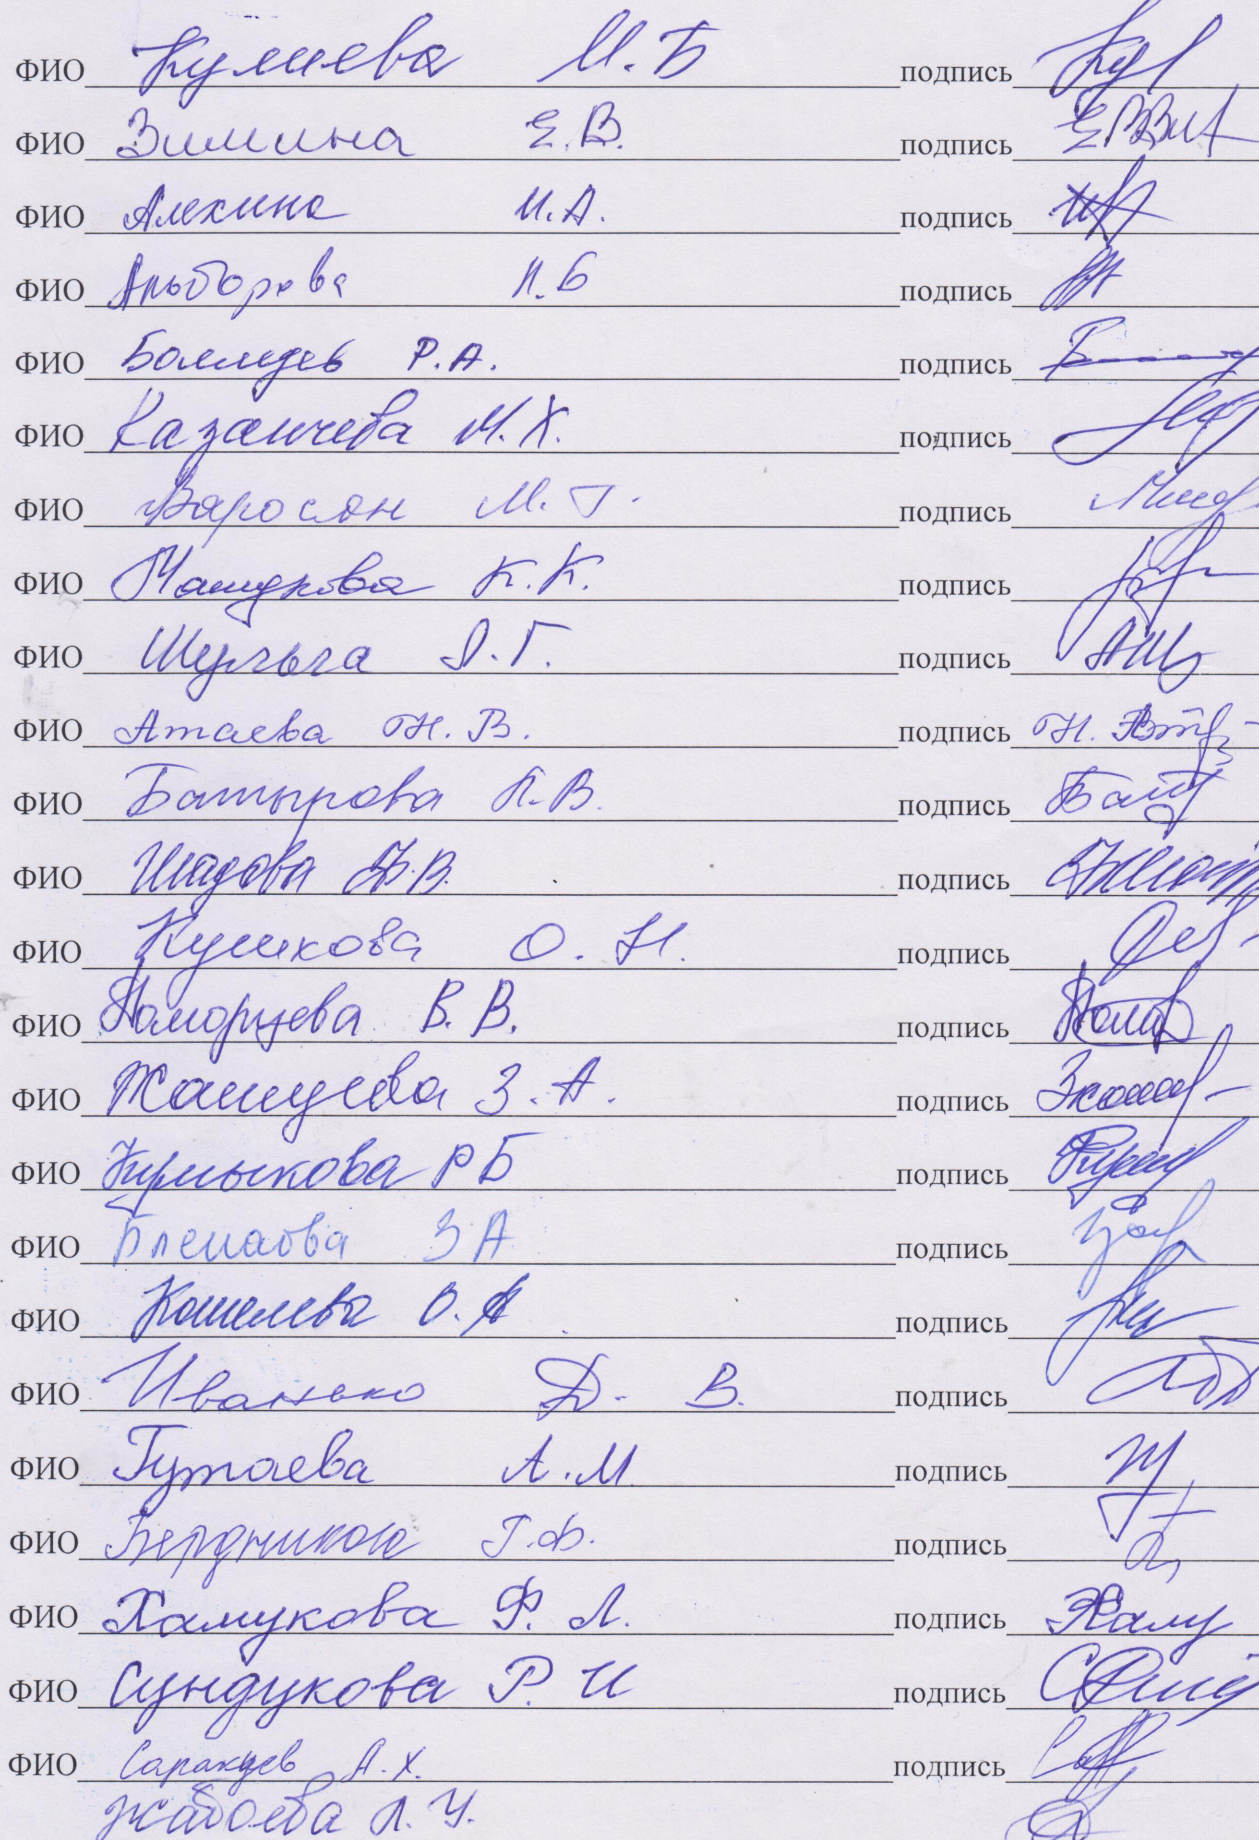 ФИО Кулиева М.Б подпись
ФИО Зимина Е.В. подпись
ФИО Алехина И.А. подпись
ФИО Альборова Л.Б подпись
ФИО Р.А. подпись
ФИО Казанчева М.Х. подпись
ФИО М.Г. подпись
ФИО Машукова К.К. подпись
ФИО Шульга Л.Г. подпись
ФИО Атаева Н.В. подпись Н.
ФИО Батырова Л.В. подпись Бат
ФИО Шадова В. подпись
ФИО Кушхова О.Н. подпись
ФИО Поморцева В.В. подпись
ФИО Жашуева З.А. подпись
ФИО Кумыкова Р Б подпись
ФИО З А подпись
ФИО Кошелева О.А подпись
ФИО Иванько Д. В. подпись
ФИО Гутаева А.М подпись
ФИО Бердникова Г.Ф. подпись
ФИО Хамукова Ф. Л. подпись Хаму
ФИО Сундукова Р. И подпись
ФИО Саракуев А.Х. подпись
Жабоева Л.У.